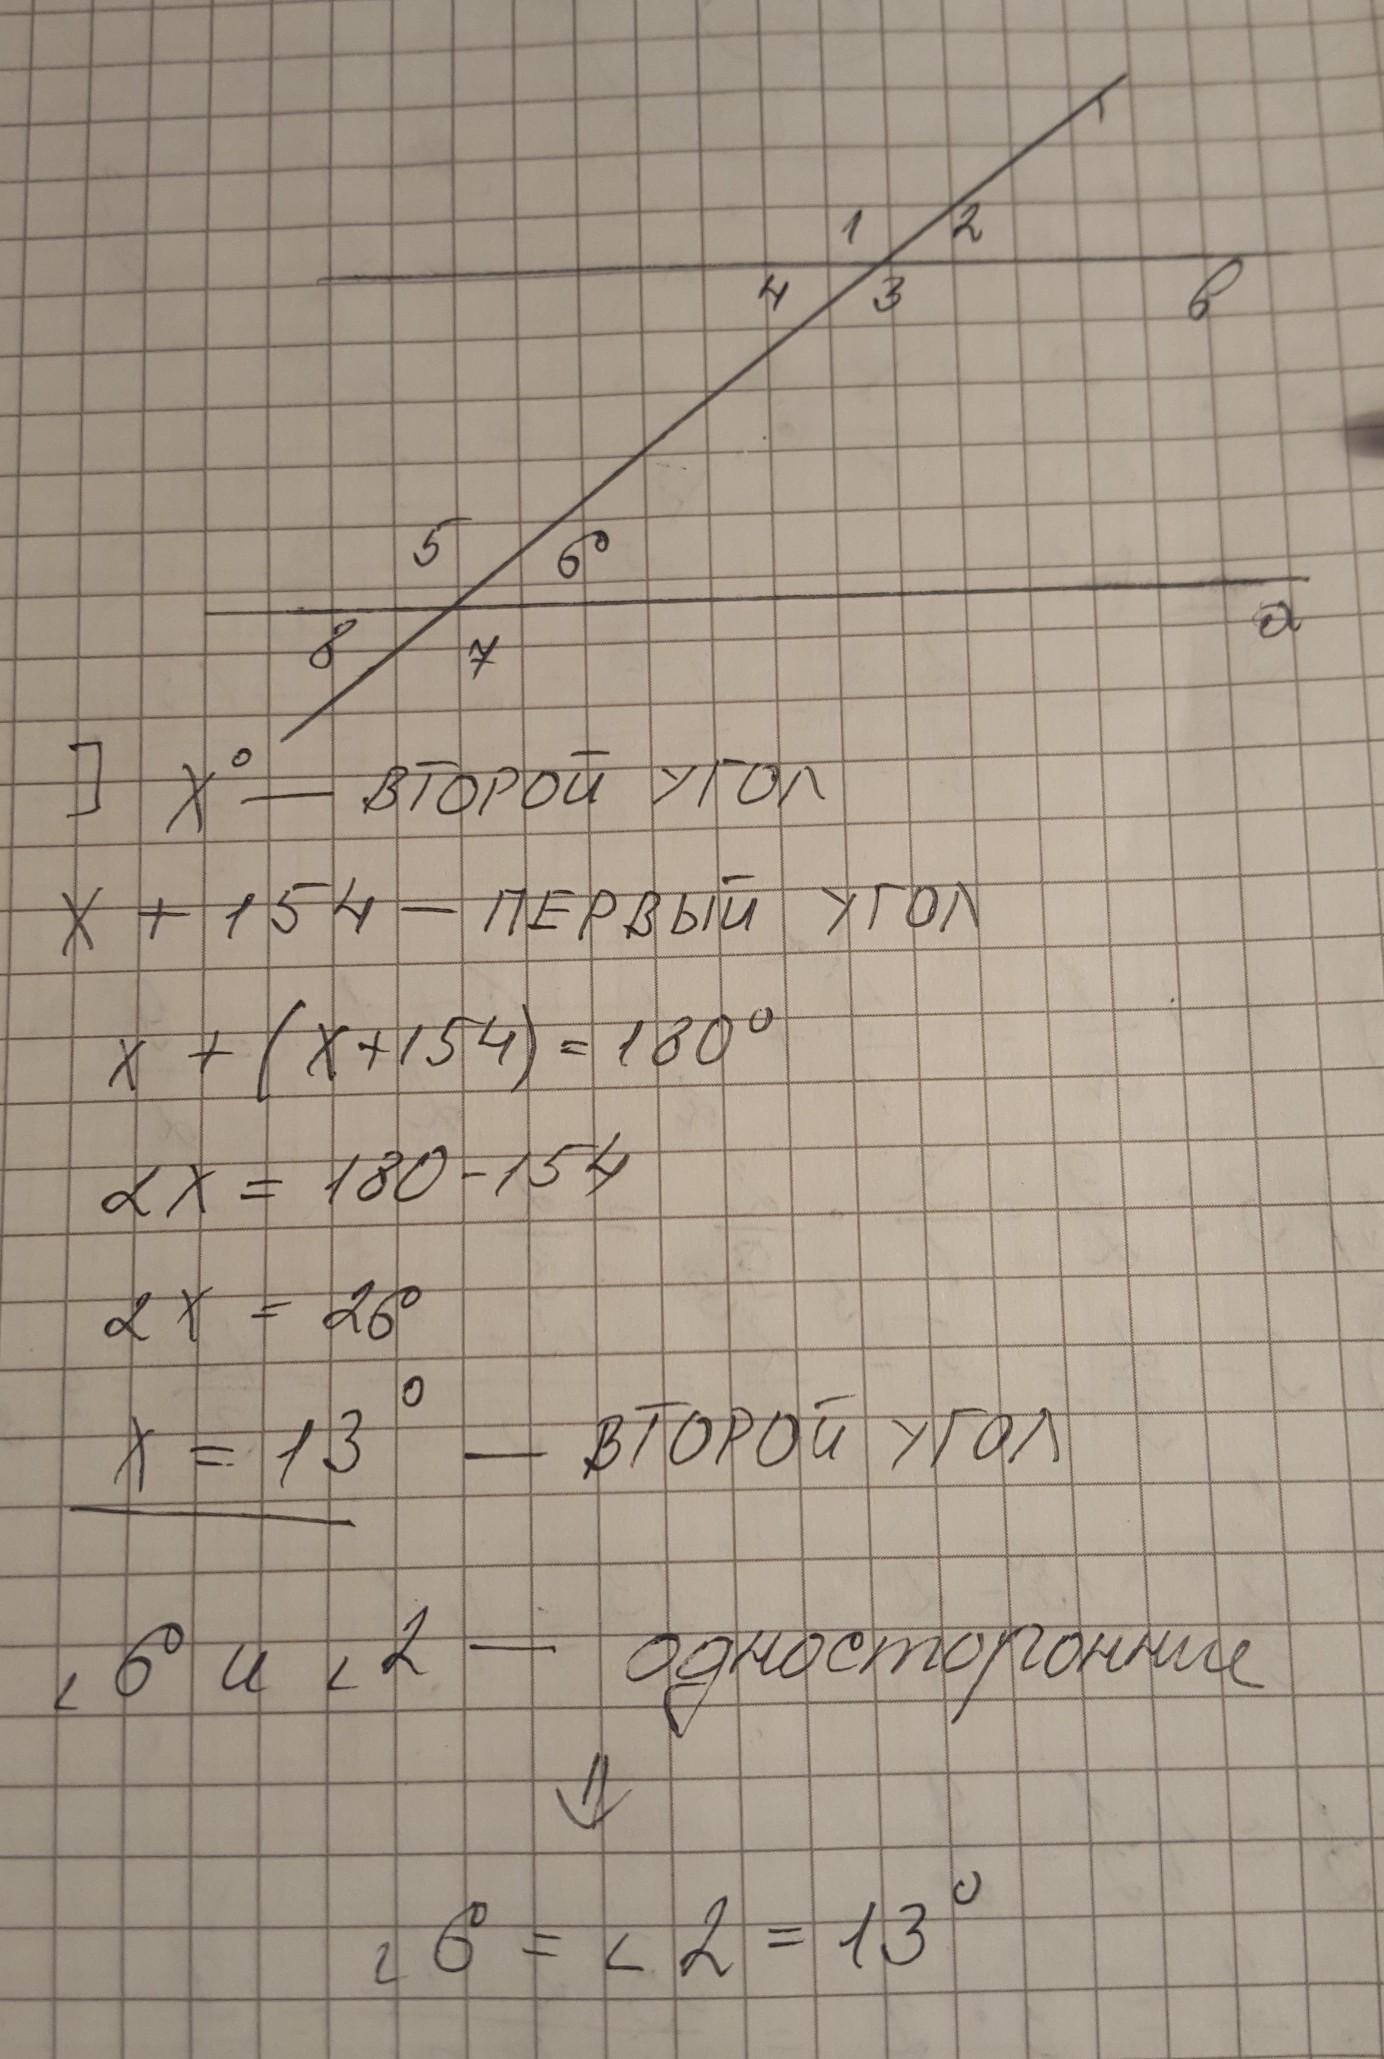 1 2
4 3 b
5 6
8 7 a
] x° — ВТОРОЙ УГОЛ
x + 154 — ПЕРВЫЙ УГОЛ
x + (x+154) = 180°
2x = 180-154
2x = 26
x = 13° — ВТОРОЙ УГОЛ
∠6 и ∠2 — односторонние
⇓
∠6 = ∠2 = 13°